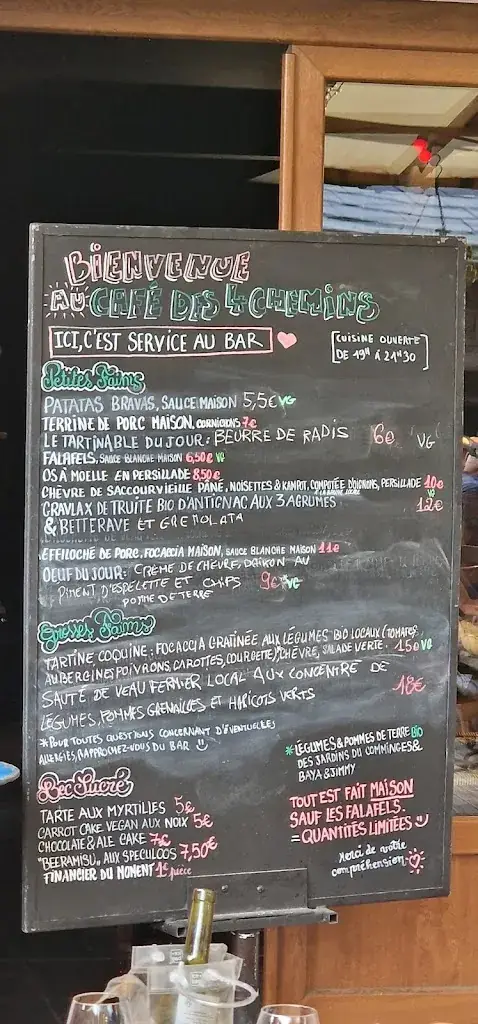 BIENVENUE
AU CAFÉ DES 4 CHEMINS
ICI, C'EST SERVICE AU BAR
CUISINE OUVERTE
DE 19H À 21H30
Petites Faims
PATATAS BRAVAS, SAUCE MAISON 5,5€ VG
TERRINE DE PORC MAISON, CORNICHONS 7€
LE TARTINABLE DU JOUR: BEURRE DE RADIS 6€ VG
FALAFELS, SAUCE BLANCHE MAISON 6,50€ VG
OS À MOELLE EN PERSILLADE 8,50€
CHÈVRE DE SACCOURVIELLE PANÉ, NOISETTES & KAMPOT, COMPOTÉE D'OIGNONS, PERSILLADE 10€ VG
GRAVLAX DE TRUITE BIO D'ANTIGNAC AUX 3 AGRUMES 12€
& BETTERAVE ET GREMOLATA
EFFILOCHÉ DE PORC, FOCACCIA MAISON, SAUCE BLANCHE MAISON 11€
OEUF DU JOUR: CRÈME DE CHÈVRE, DAIKON AU
PIMENT D'ESPELETTE ET CHIPS 9€ VG
POMME DE TERRE
Grosses Faims
TARTINE COQUINE: FOCACCIA GRATINÉE AUX LÉGUMES BIO LOCAUX (TOMATES
AUBERGINES POIVRONS CAROTTES, COURGETTE), CHÈVRE, SALADE VERTE. 15€ VG
SAUTÉ DE VEAU FERMIER LOCAL AUX CONCENTRÉ DE
LÉGUMES, POMMES GRENAILLES ET HARICOTS VERTS 18€
*POUR TOUTES QUESTIONS CONCERNANT D'ÉVENTUELLES
ALLERGIES, RAPPROCHEZ-VOUS DU BAR
*LÉGUMES & POMMES DE TERRE BIO
DES JARDINS DU COMMINGES &
BAYA & JIMMY
Bec Sucré
TARTE AUX MYRTILLES 5€
CARROT CAKE VEGAN AUX NOIX 5€
CHOCOLATE & ALE CAKE 7€
"BEERAMISU" AUX SPECULOOS 7,50€
FINANCIER DU MOMENT 1€ pièce
TOUT EST FAIT MAISON
SAUF LES FALAFELS.
= QUANTITÉS LIMITÉES
Merci de votre
compréhension